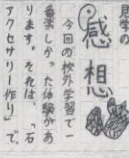 感想
今回の校外学習で一
番楽しかった体験があ
ります。それは、「石
アクセサリー作り」で、